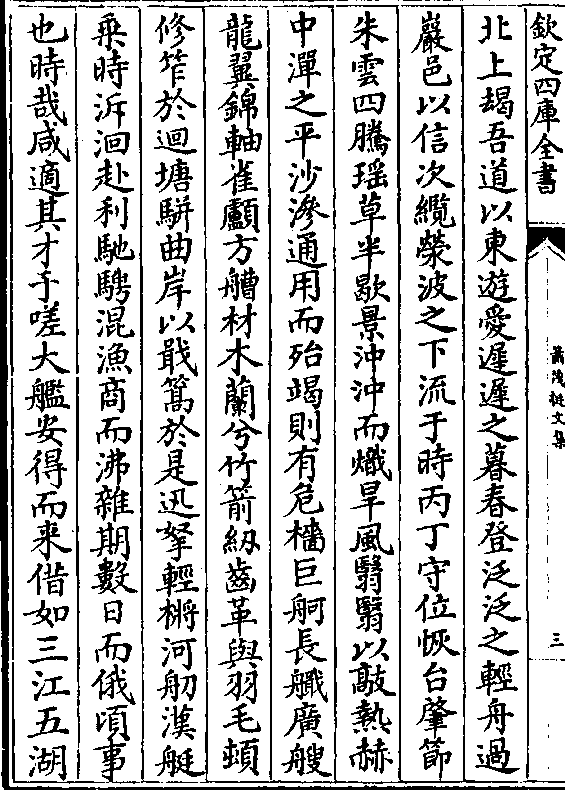 欽定四庫全書
蕭茂挺文集
三
北上朅吾道以東遊愛遲遲之暮春登泛泛之輕舟過
巖邑以信次纜滎波之下流于時丙丁守位恢台肇節
朱雲四騰瑶草半歇景沖沖而熾旱風翳翳以敲熱赫
中潬之平沙滲通用而殆竭則有危檣巨舸長艬廣艘
龍翼錦軸雀顱方艚材木蘭兮竹箭紉齒革與羽毛頓
修笮於迴塘駢曲岸以戢篙於是迅拏輕槳河舠漢艇
乗時泝洄赴利馳騁混漁商而沸雜期數日而俄頃事
也時哉咸適其才予嗟大艦安得而来借如三江五湖